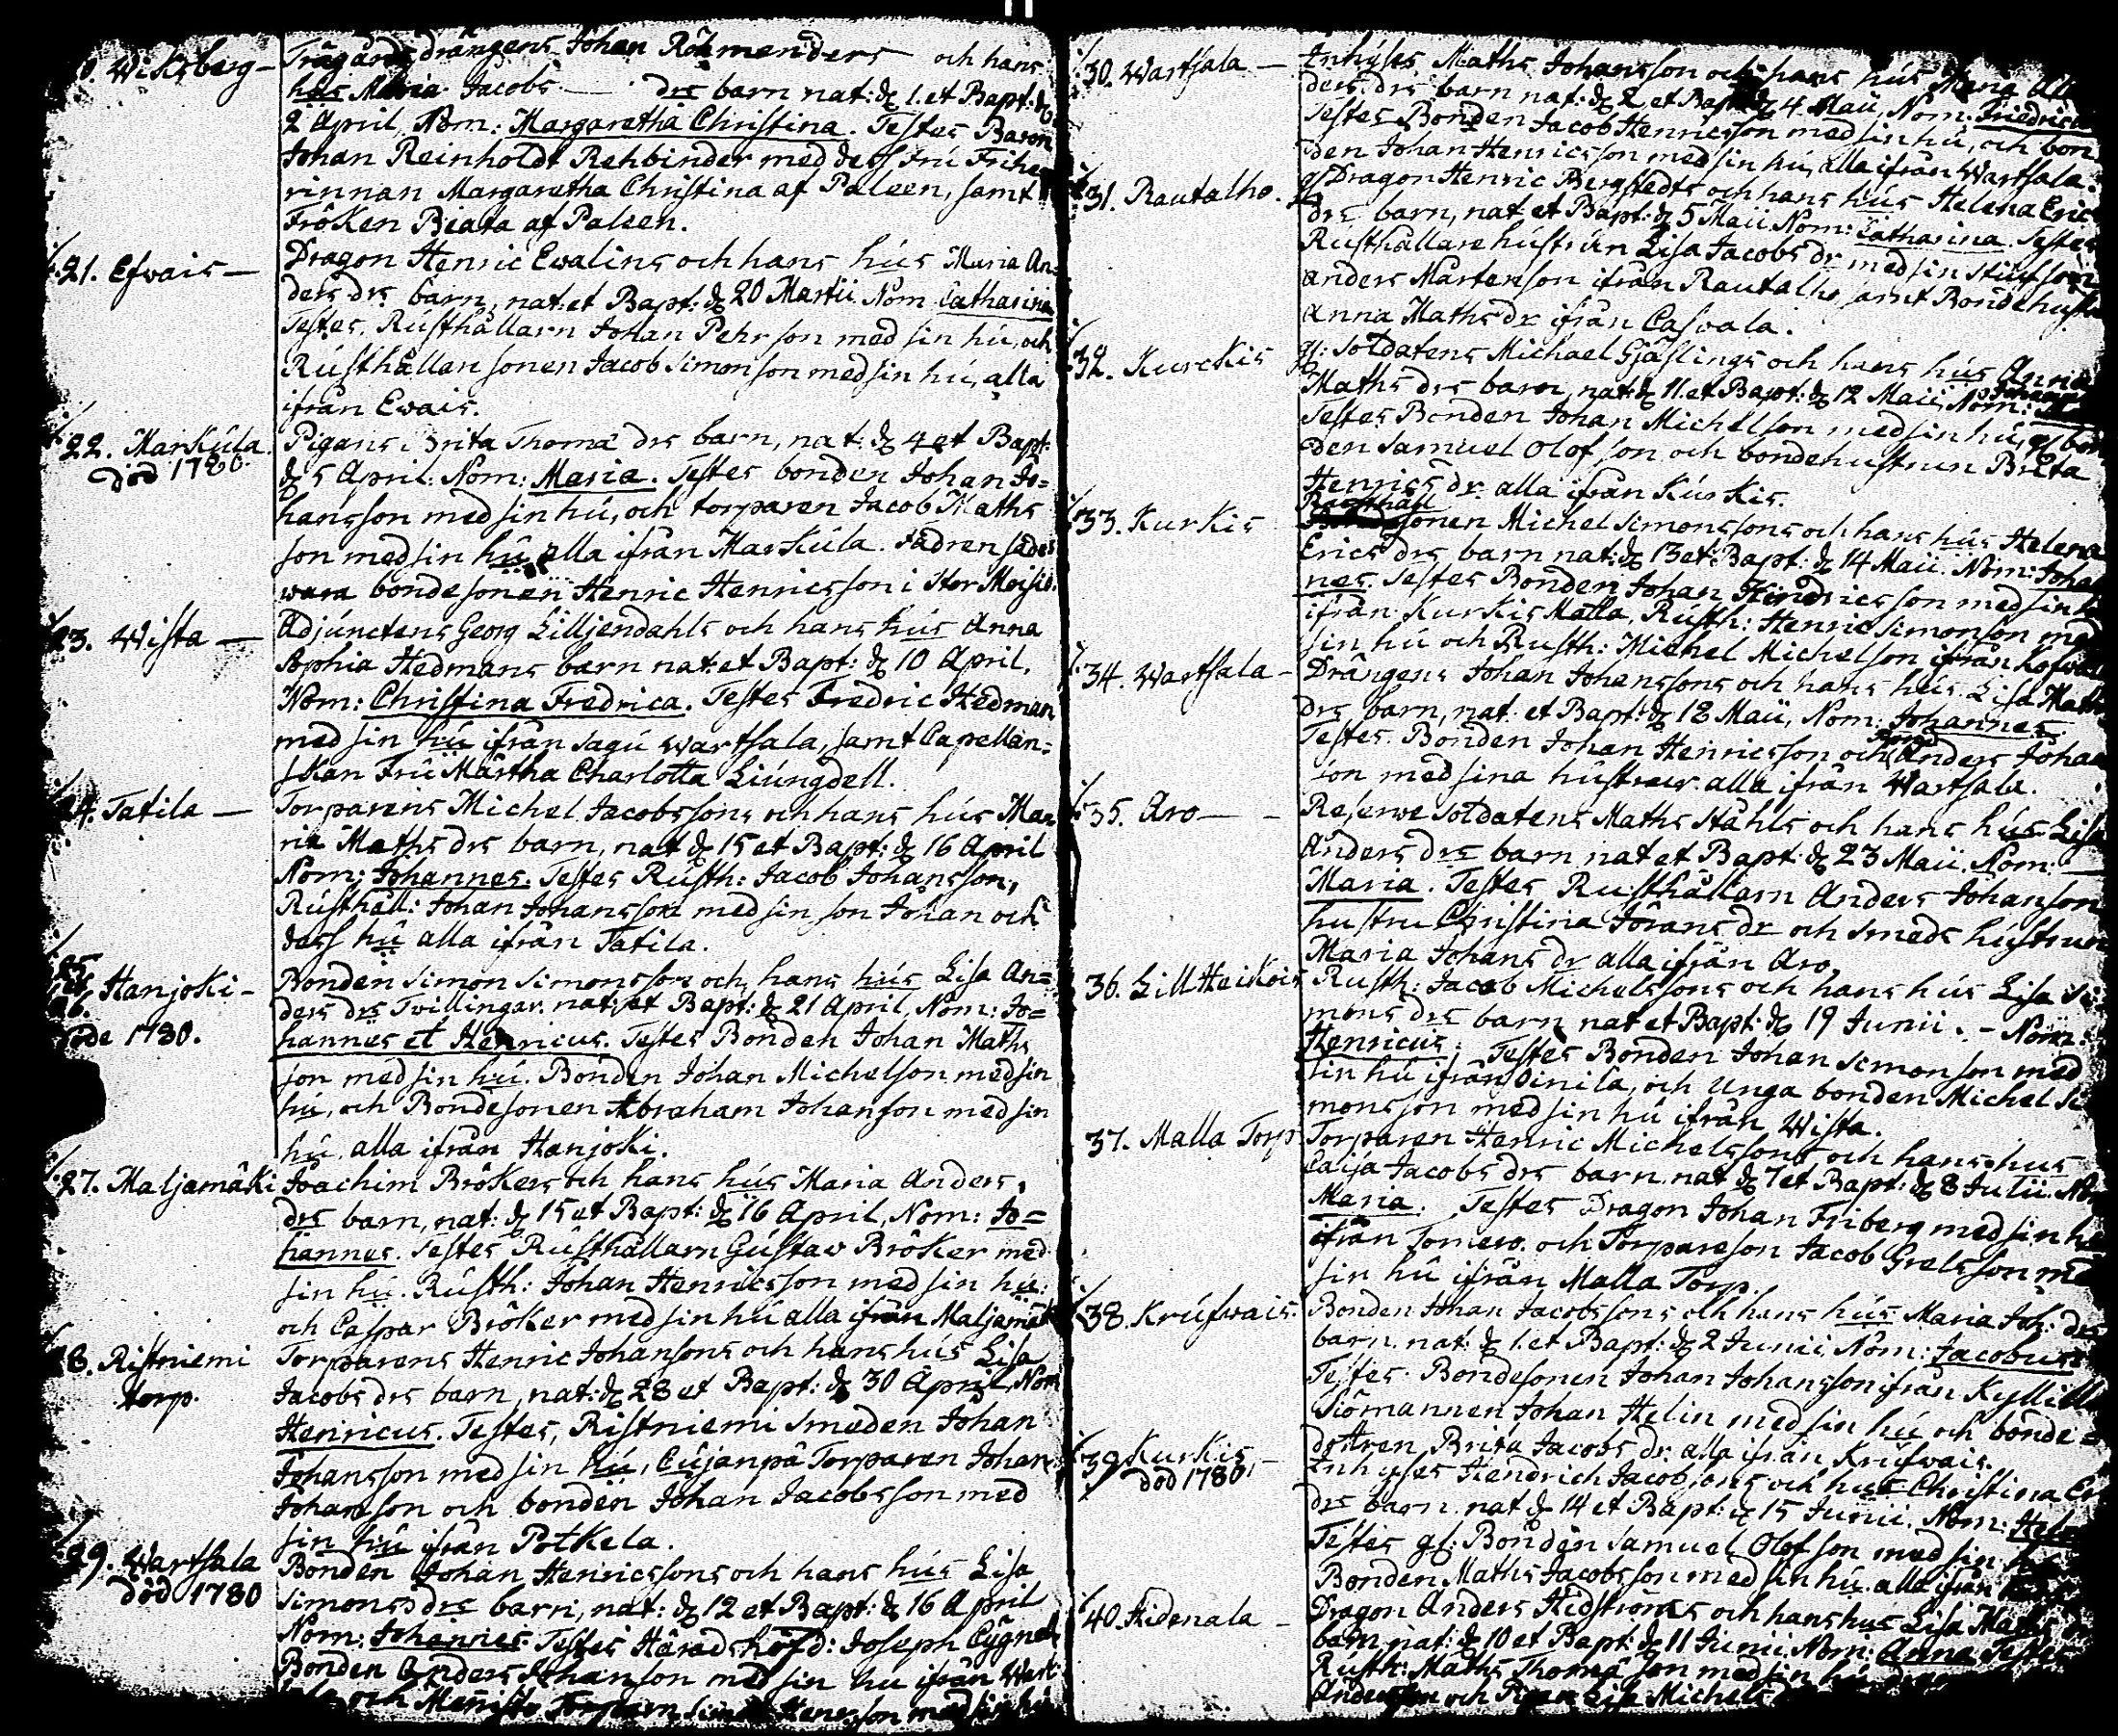 0. Wiksberg — Trägårds drängens Johan Rökmenders och hans
hús Maria Jacobs — drs barn nat: d. 1. et Bapt: d.
2 April, Nom: Margaretha Christina. Testes Baron
Johan Reinholdt Rehbinder med dess frú Frihe
rinnan Margaretha Christina af Paléen, samt
Fröken Beata af Paleen.
21. Efwais — Dragon Henric Ewalins och hans hús Maria An=
ders drs barn, nat: et Bapt: d. 20 Martii Nom Catharina
Testes. Rústhållarn Johan Pehrson med sin hú, och
Rústhållar sonen Jacob Simonson med sin hú, alla
ifrån Ewais.
22. Markúla. Pigans Brita Thomæ drs barn, nat: d. 4 et Bapt:
död 1780. d. 5 April. Nom: Maria. Testes bonden Johan Jo=
hansson med sin hú, och torparen Jacob Maths
son med sin hú alla ifrån Markúla. Fadren sades
wara bondesonen Henric Henricsson i Stor Moisio.
23. Wista — Adjúnctens Georg Lilljendahls och hans hús Anna
Sophia Hedmans barn nat: et Bapt: d. 10 April.
Nom: Christina Fredrica. Testes Fredric Hedman
med sin hú ifrån Sagú wartsala, samt Capellan=
skan Frú Märtha Charlotta Liúngdell.
24. Tatila — Torparens Michel Jacobssons och hans hús Ma=
ria Maths drs barn, nat d. 15 et Bapt: d. 16 April
Nom: Johannes. Testes Rústh: Jacob Johansson,
Rústhåll: Johan Johansson med sin son Johan och
dess hú alla ifrån Tatila.
25
26. Hanjoki — Bonden Simon Simonsson och hans hús Lisa An=
ders drs Tvillingar. nat: et Bapt: d. 21 April, Nom: Jo=
döde 1780. hannes et Henricus. Testes Bonden Johan Maths
son med sin hú. Bonden Johan Michelson med sin
hú, och Bondesonen Abraham Johanson med sin
hú. alla ifrån Hanjoki.
27. Maljamäki Joachim Brökers och hans hús Maria Anders
drs barn, nat: d. 15 et Bapt: d. 16 April, Nom: Jo=
hannes. Testes Rústhållarn Gústav Bröker med
sin hú. Rústh: Johan Henricsson med sin hú:
och Caspar Bröker med sin hú alla ifrån Maljamäki
28. Ristniemi Torparens Henric Johansons och hans hús Lisa
torp. Jacobs drs barn, nat: d. 28 et Bapt: d. 30 April, Nom
Henricus. Testes, Ristniemi smeden Johan
Johansson med sin hú, Cújanpä Torparen Johan
Johanson och bonden Johan Jacobsson med
sin hú ifrån Potkela.
29. Wartsala Bonden Johan Henricssons och hans hús Lisa
död 1780 Simons drs barn, nat: d. 12 et Bapt: d. 16 April
Nom: Johannes. Testes Härads höfd: Joseph Cygnel
Bonden Anders Johanson med sin hu ifrån Wart
och Torparn Henrsson med sin hú
30. Wartsala — Inhyses Maths Johansson och hans hús Maria
ders drs barn nat: d. 2 et Bapt: d. 4 Maii, Nom: Friedrica
Testes Bonden Jacob Henricsson med sin hú, och bon
den Johan Henricsson med sin hú, alla ifrån Wartsala.
31. Rautalho. gl Dragon Henric Bergstedts och hans hús Helena Eric
drs barn, nat et Bapt: d. 5 Maii Nom: Catharina. Testes
Rústhållare hústrún Lisa Jacobs dr med sin stiúfson
Anders Mårtenson ifrån Rautalho, samt Bondehustr
Anna Maths dr ifrån Casvala.
32. Kurckis gl: Soldatens Michael Gjäslings och hans hús Anna
Maths drs barn, nat: d. 11. et Bapt: d. 12 Maii, Nom:
Testes Bonden Johan Michelsson med sin hú, gl bon
den Samuel Olofson och bondehustrun Brita
Henrics dr alla ifrån Kúrkis.
33. Kurkis Rústhåll sonen Michel Simonssons och hans hús Helena
Erics drs barn nat: d. 13 et Bapt: d. 14 Maii. Nom: Johan
nes. Testes Bonden Johan Hindricsson med sin hú
ifrån Kurkis Malla, Rústh: Henric Simonson med
sin hú och Rusth: Michel Michelson ifrån
34. Wartsala — Drängens Johan Johanssons och hans hús. Lisa Maths
drs barn, nat. et Bapt: d. 18 Maii, Nom: Johannes.
Testes. Bonden Johan Henricsson och Bond Anders Johan
son med sina hústrur. alla ifrån Wartsala.
35. Aro — Reserve soldatens Maths Ståhls och hans hús Lisa
Anders drs barn nat et Bapt: d. 23 Maii. Nom:
Maria. Testes Rusthållarn Anders Johanson
hustru Christina Jörans dr och smeds hústrun
Maria Johans dr alla ifrån Aro.
36. Lill Heikois Rusth: Jacob Michelssons och hans hús Lisa Si=
mons drs barn nat et Bapt: d. 19 Junii. — Nom:
Henricus. Testes Bonden Johan Simonson med
sin hú ifrån Oinila, och Unga bonden Michel Si
monsson med sin hú ifrån Wista.
37. Malla Torp. Torparen Henric Michelssons och hans hus
Caisa Jacobs drs barn. nat d. 7 et Bapt: d. 8 Julii. Nom
Maria. Testes Dragon Johan Friberg med sin hú
ifrån Tomero. och Torpareson Jacob Grelsson med
sin hú ifrån Malla Torp.
38. Krúfwais. Bonden Johan Jacobssons och hans hús Maria Joh: drs
barn. nat: d. 1. et Bapt: d. 2 Junii, Nom: Jacobus
Testes. Bondesonen Johan Johansson ifrån Kyllilä
Siömannen Johan Helin med sin hú och bonde=
dottren Brita Jacobs dr. alla ifrån Krúfwais.
39 Kurkis, — Inhyses Hendrich Jacobsons och hus Christina Er
död 1780. drs barn. nat d. 14 et Bapt: d. 15 Junii. Nom:
Testes gl: Bonden Samuel Olofson med sin hú
Bonden Maths Jacobsson med sin hú. alla ifrån
40. Hidenala — Dragon Anders Hedströms och hans hus Lisa Maths
barn nat: d. 10 et Bapt: d. 11 Junii. Nom: Anna Testes
Rústh: Maths Thomæ son med sin hú
Anderson och Lisa Michels